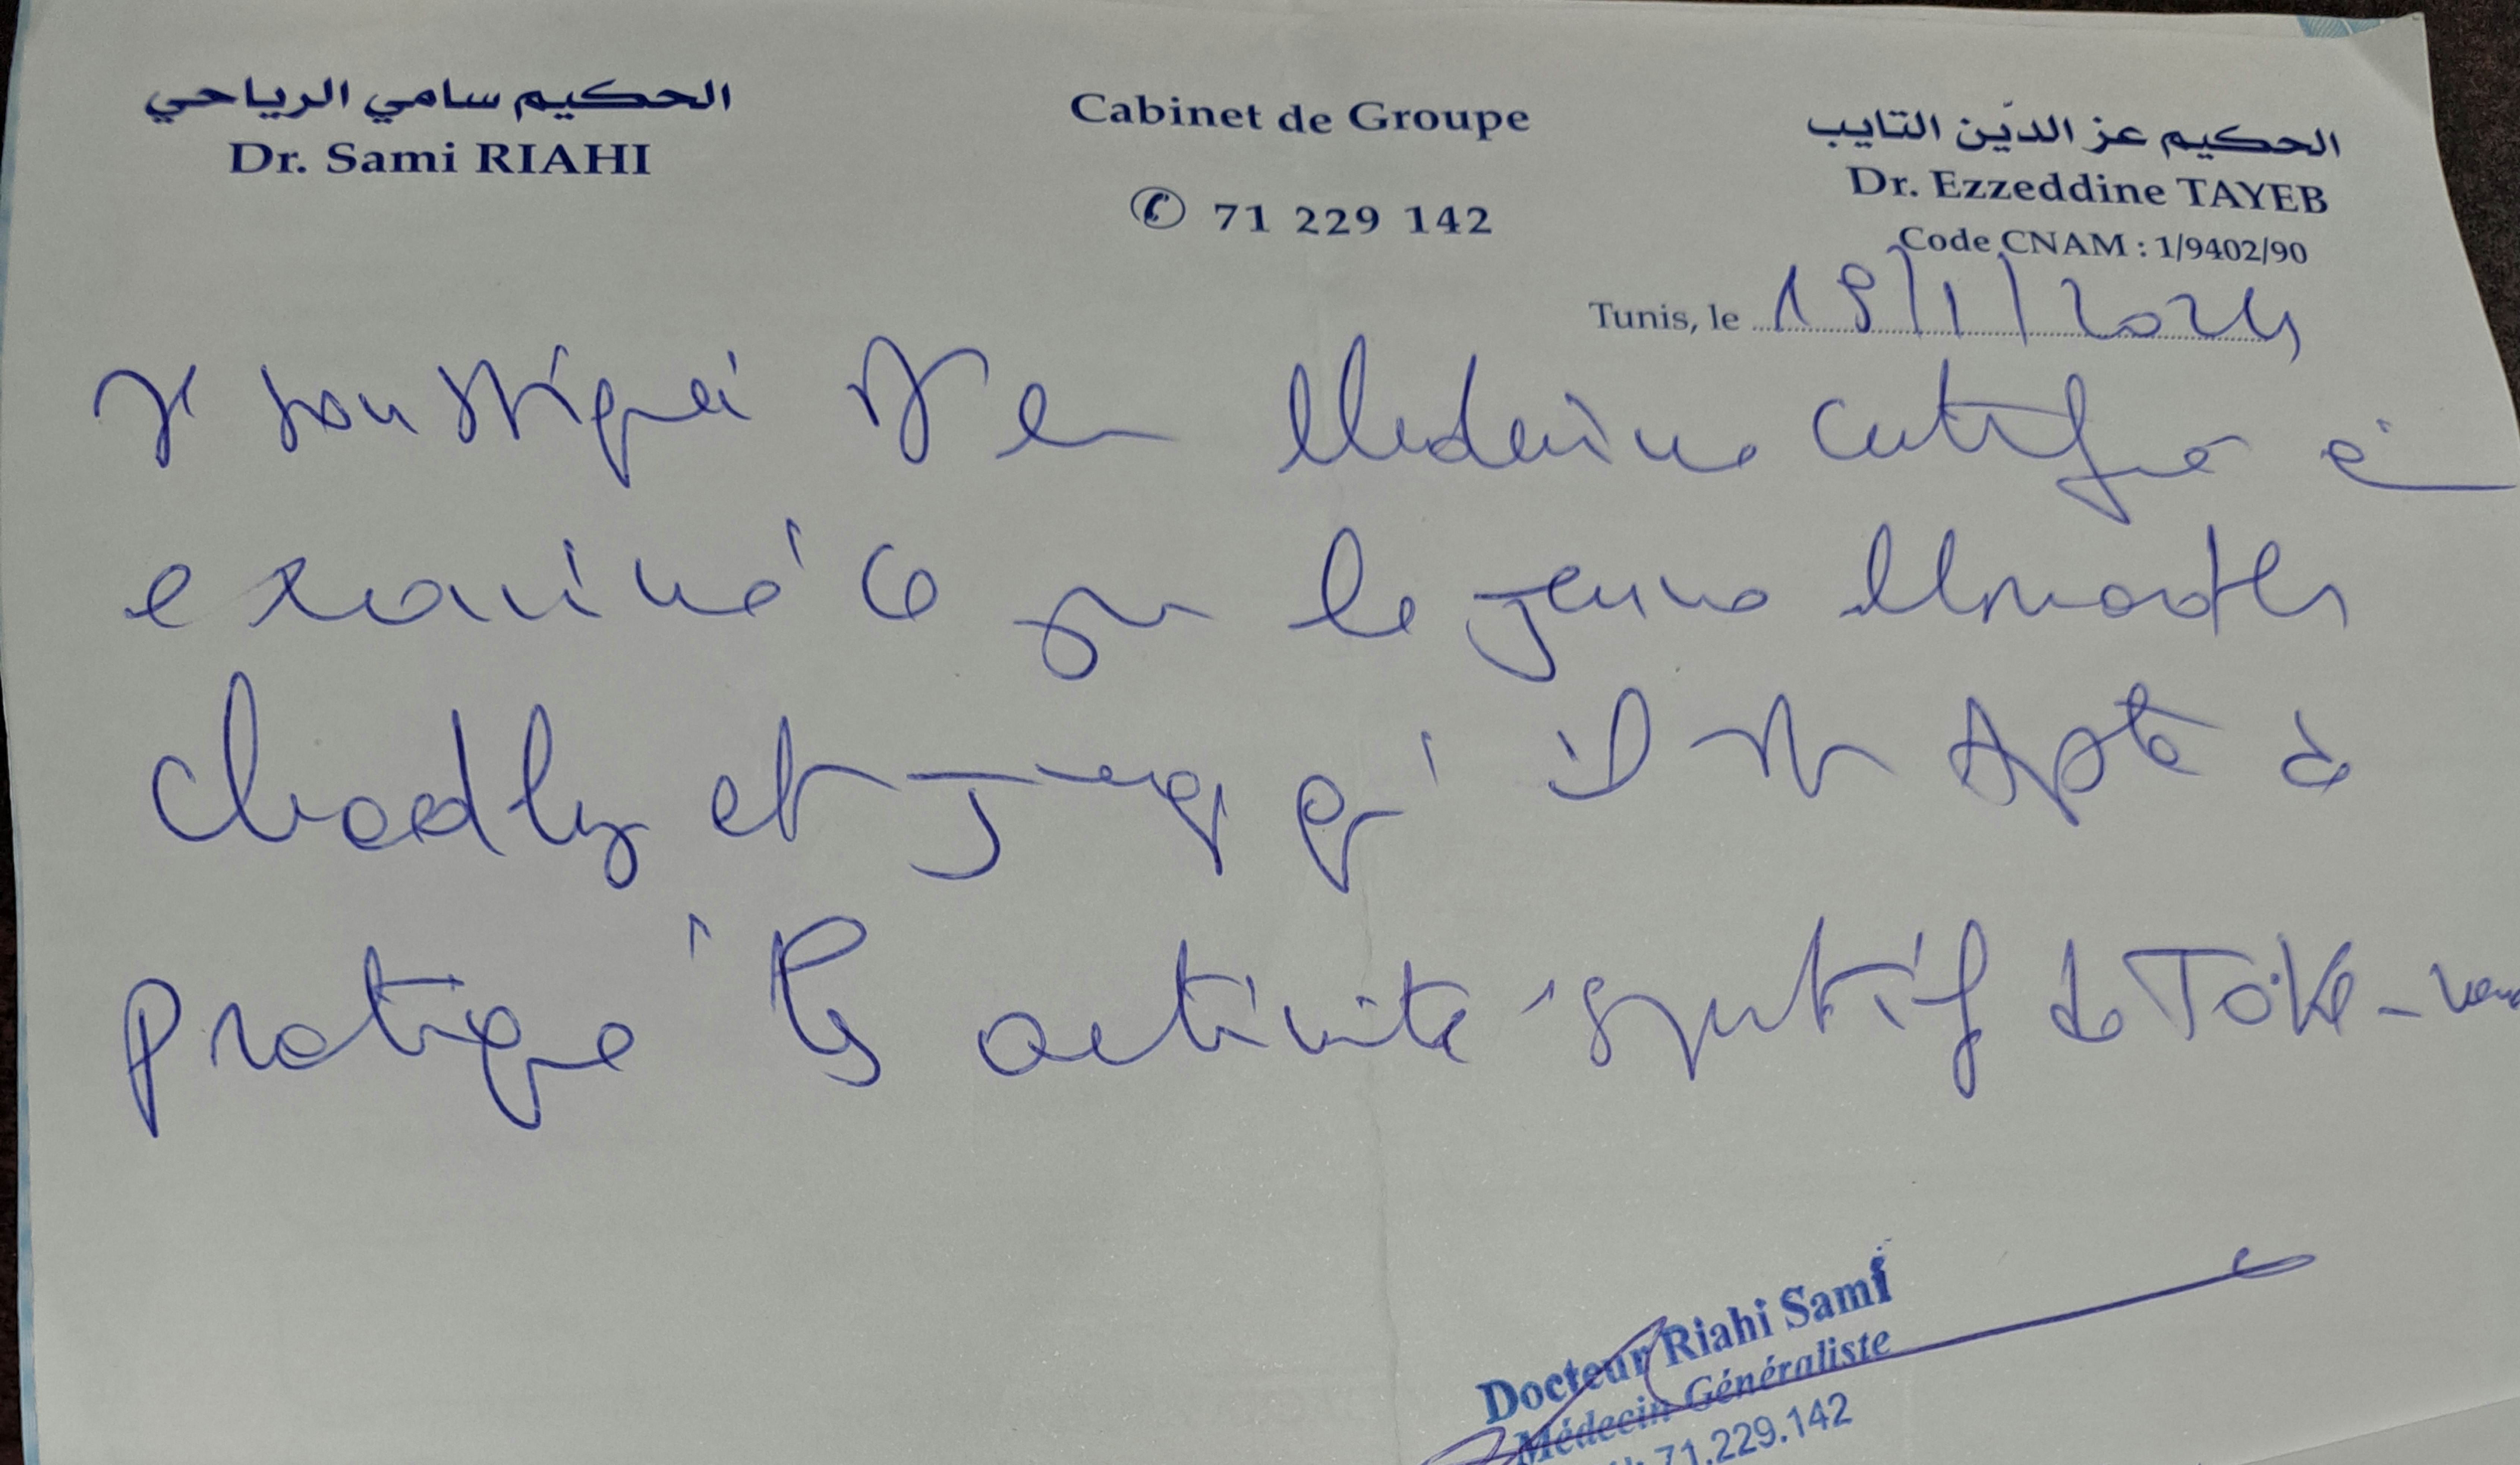 الحكيم سامي الرياحي
Dr. Sami RIAHI
Cabinet de Groupe
✆ 71 229 142
الحكيم عز الدّين التايب
Dr. Ezzeddine TAYEB
Code CNAM : 1/9402/90
Tunis, le 19/1/2024
Je soussigné Dr en Medecine certifie
examiné ce jour le jeune
chadly et juge qu'il est Apte à
pratiqué les activité sportif de
Docteur Riahi Sami
Médecin Généraliste
71.229.142